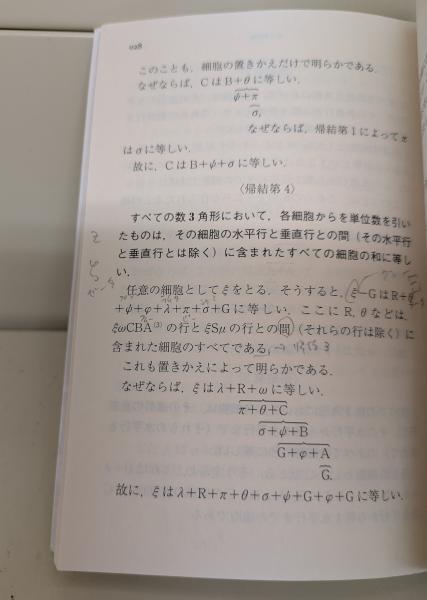 028
このことも，細胞の置きかえだけで明らかである．
なぜならば，CはB+θに等しい．
ψ+π
σ,
なぜならば，帰結第1によってπ
はσに等しい．
故に，CはB+ψ+σに等しい．
〈帰結第4〉
すべての数3角形において，各細胞からを単位数を引い
たものは，その細胞の水平行と垂直行との間（その水平行
と垂直行とは除く）に含まれたすべての細胞の和に等し
い．
任意の細胞としてξをとる．そうすると，ξ−GはR+θ
+ψ+φ+λ+π+σ+Gに等しい．ここにR, θなどは，
ξωCBA(3)の行とξSμの行との間（それらの行は除く）に
含まれた細胞のすべてである．
これも置きかえによって明らかである．
なぜならば，ξはλ+R+ωに等しい．
π+θ+C
σ+ψ+B
G+φ+A
G.
故に，ξはλ+R+π+θ+σ+ψ+G+φ+Gに等しい．